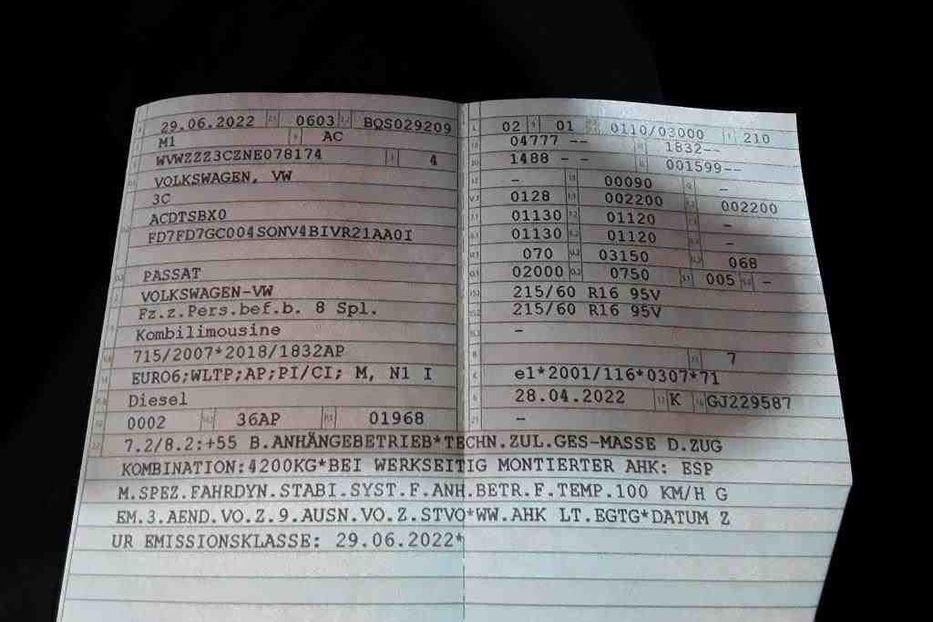 29.06.2022 0603 BQS029209
M1 AC
WVWZZZ3CZNE078174 4
VOLKSWAGEN, VW
3C
ACDTSBX0
FD7FD7GC004SONV4BIVR21AA0I
PASSAT
VOLKSWAGEN-VW
Fz.z.Pers.bef.b. 8 Spl.
Kombilimousine
715/2007*2018/1832AP
EURO6;WLTP;AP;PI/CI; M, N1 I
Diesel
0002 36AP 01968
02 01 0110/03000 210
04777 -- 1832--
1488 - - 001599--
- 00090 -
0128 002200 002200
01130 01120 -
01130 01120 -
070 03150 068
02000 0750 005 -
215/60 R16 95V
215/60 R16 95V
-
7
e1*2001/116*0307*71
28.04.2022 K GJ229587
-
7.2/8.2:+55 B.ANHÄNGEBETRIEB*TECHN.ZUL.GES-MASSE D.ZUG
KOMBINATION:4200KG*BEI WERKSEITIG MONTIERTER AHK: ESP
M.SPEZ.FAHRDYN.STABI.SYST.F.ANH.BETR.F.TEMP.100 KM/H G
EM.3.AEND.VO.Z.9.AUSN.VO.Z.STVO*WW.AHK LT.EGTG*DATUM Z
UR EMISSIONSKLASSE: 29.06.2022*